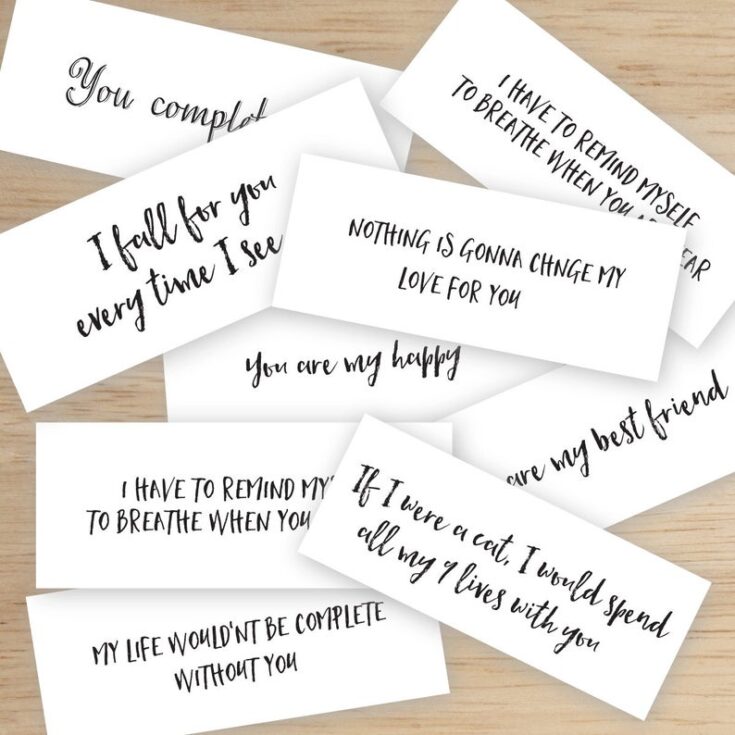 You complet
I HAVE TO REMIND MYSELF
TO BREATHE WHEN YOU
I fall for you
every time I see
NOTHING IS GONNA CHNGE MY
LOVE FOR YOU
You are my happy
are my best friend
I HAVE TO REMIND MY
TO BREATHE WHEN YOU
If I were a cat, I would spend
all my 9 lives with you
MY LIFE WOULD'NT BE COMPLETE
WITHOUT YOU